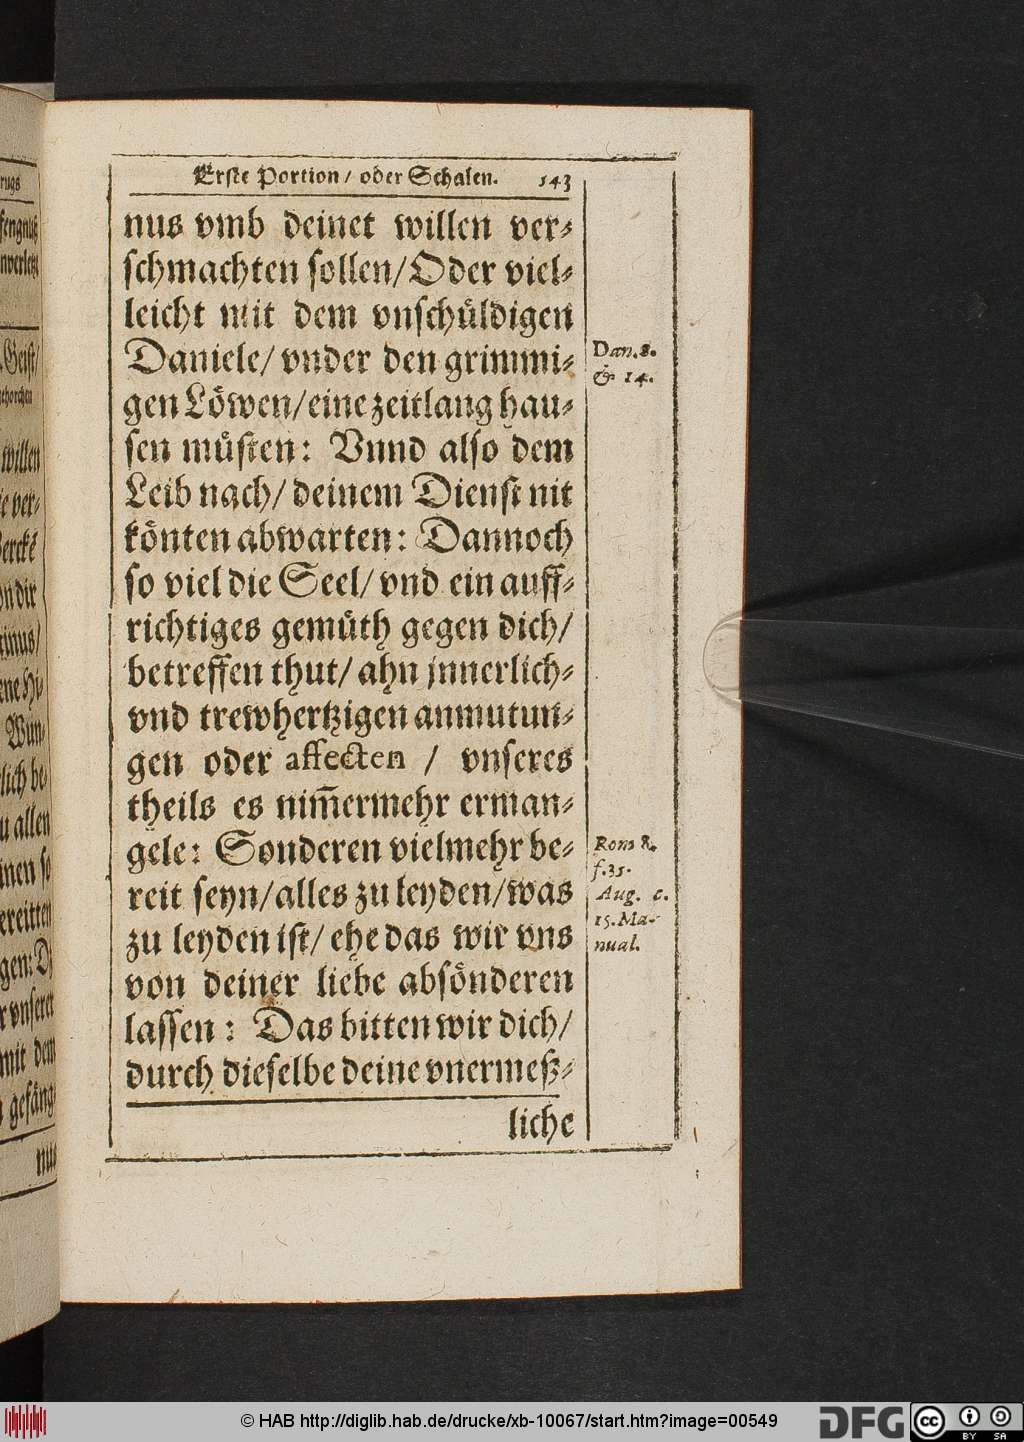 Erste Portion / oder Schalen. 143
nus vmb deinet willen ver⸗
schmachten sollen / Oder viel⸗
leicht mit dem vnschüldigen
Daniele / vnder den grimmi⸗
gen Löwen / eine zeitlang hau⸗
sen müsten: Vnnd also dem
Leib nach / deinem Dienst nit
könten abwarten: Dannoch
so viel die Seel / vnd ein auff⸗
richtiges gemüth gegen dich /
betreffen thut / ahn jnnerlich⸗
vnd trewhertzigen anmutun⸗
gen oder affecten / vnseres
theils es nim̄ermehr erman⸗
gele: Sonderen vielmehr be⸗
reit seyn / alles zu leyden / was
zu leyden ist / ehe das wir vns
von deiner liebe absönderen
lassen: Das bitten wir dich /
durch dieselbe deine vnermeß⸗
liche
Dan. 8.
& 14.
Rom 8.
f. 35.
Aug. c.
15. Ma-
nual.
rugs
willen
nus
© HAB http://diglib.hab.de/drucke/xb-10067/start.htm?image=00549
DFG
cc
BY SA